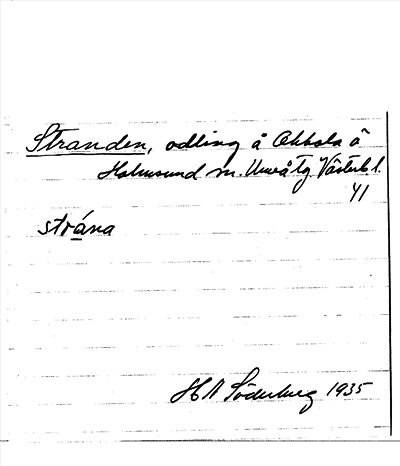 Stranden, odling å Obbola ö
Holmsund m. Umeå tg. Västerb l.
41
strána
H A Söderberg 1935